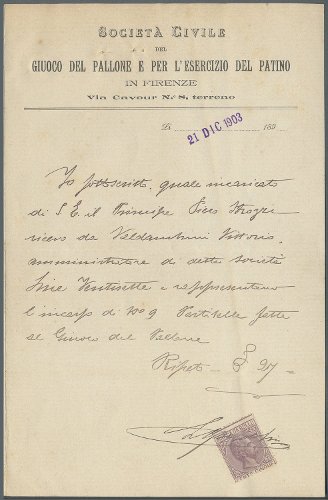 SOCIETÀ CIVILE
DEL
GIUOCO DEL PALLONE E PER L'ESERCIZIO DEL PATINO
IN FIRENZE
Via Cavour N.º 8, terreno
Li 21 DIC 1903 189
Io sottoscritto, quale incaricato
di S. E. il Principe Piero Strozzi
ricevo da Valdambrini Vittorio,
amministratore di detta società
Lire Ventisette e rappresentano
l'incasso di Nº 9 Partitelle fatte
al Giuoco del Pallone
Ripeto £ 27